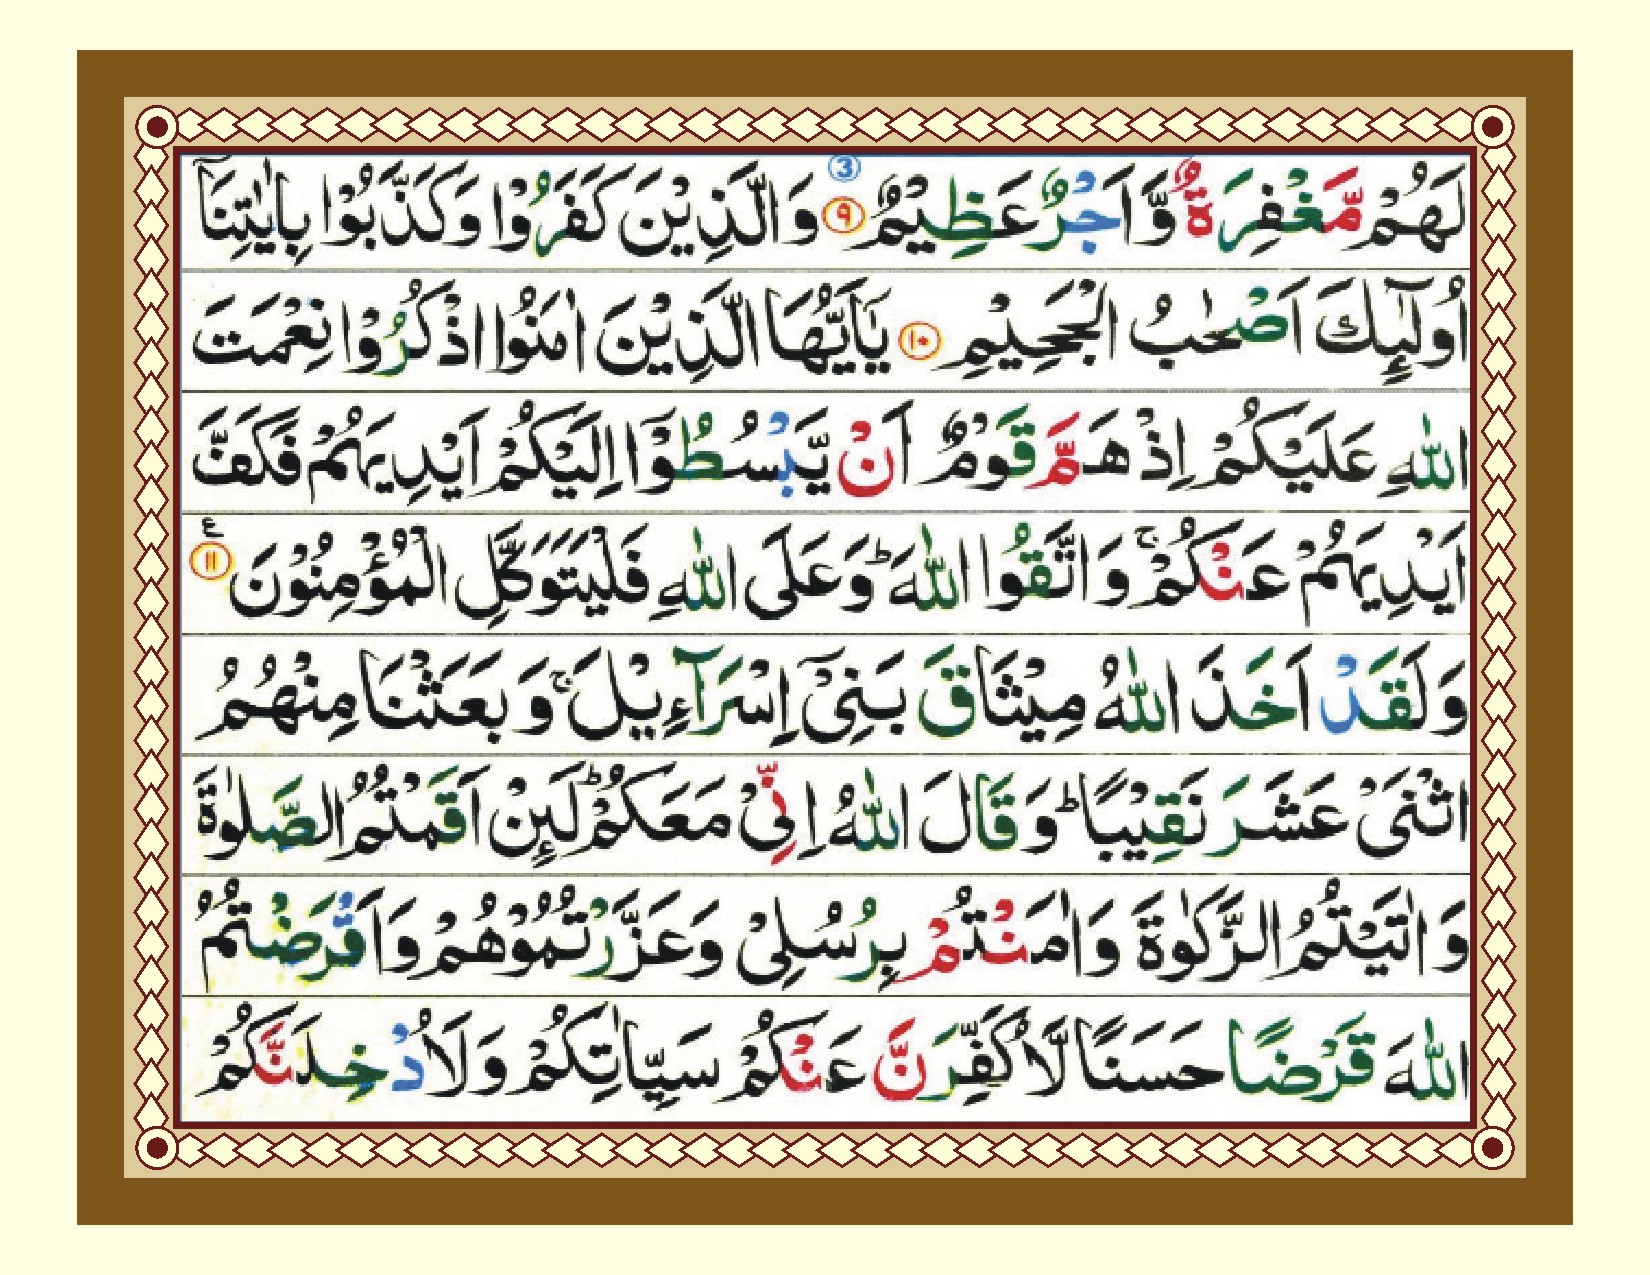 لَهُمْ مَّغْفِرَةٌ وَّاَجْرٌ عَظِيْمٌ ﴿۹﴾ 3 وَالَّذِيْنَ كَفَرُوْا وَكَذَّبُوْا بِاٰيٰتِنَاۤ
اُولٰٓئِكَ اَصْحٰبُ الْجَحِيْمِ ﴿۱۰﴾ يٰۤاَيُّهَا الَّذِيْنَ اٰمَنُوا اذْكُرُوْا نِعْمَتَ
اللّٰهِ عَلَيْكُمْ اِذْ هَمَّ قَوْمٌ اَنْ يَّبْسُطُوْۤا اِلَيْكُمْ اَيْدِيَهُمْ فَكَفَّ
اَيْدِيَهُمْ عَنْكُمْ ۚ وَاتَّقُوا اللّٰهَ ؕ وَعَلَى اللّٰهِ فَلْيَتَوَكَّلِ الْمُؤْمِنُوْنَ ﴿۱۱﴾ ع
وَلَقَدْ اَخَذَ اللّٰهُ مِيْثَاقَ بَنِيْۤ اِسْرَآءِيْلَ ۚ وَبَعَثْنَا مِنْهُمُ
اثْنَيْ عَشَرَ نَقِيْبًا ؕ وَقَالَ اللّٰهُ اِنِّيْ مَعَكُمْ ؕ لَئِنْ اَقَمْتُمُ الصَّلٰوةَ
وَاٰتَيْتُمُ الزَّكٰوةَ وَاٰمَنْتُمْ بِرُسُلِيْ وَعَزَّرْتُمُوْهُمْ وَاَقْرَضْتُمُ
اللّٰهَ قَرْضًا حَسَنًا لَّاُكَفِّرَنَّ عَنْكُمْ سَيِّاٰتِكُمْ وَلَاُدْخِلَنَّكُمْ